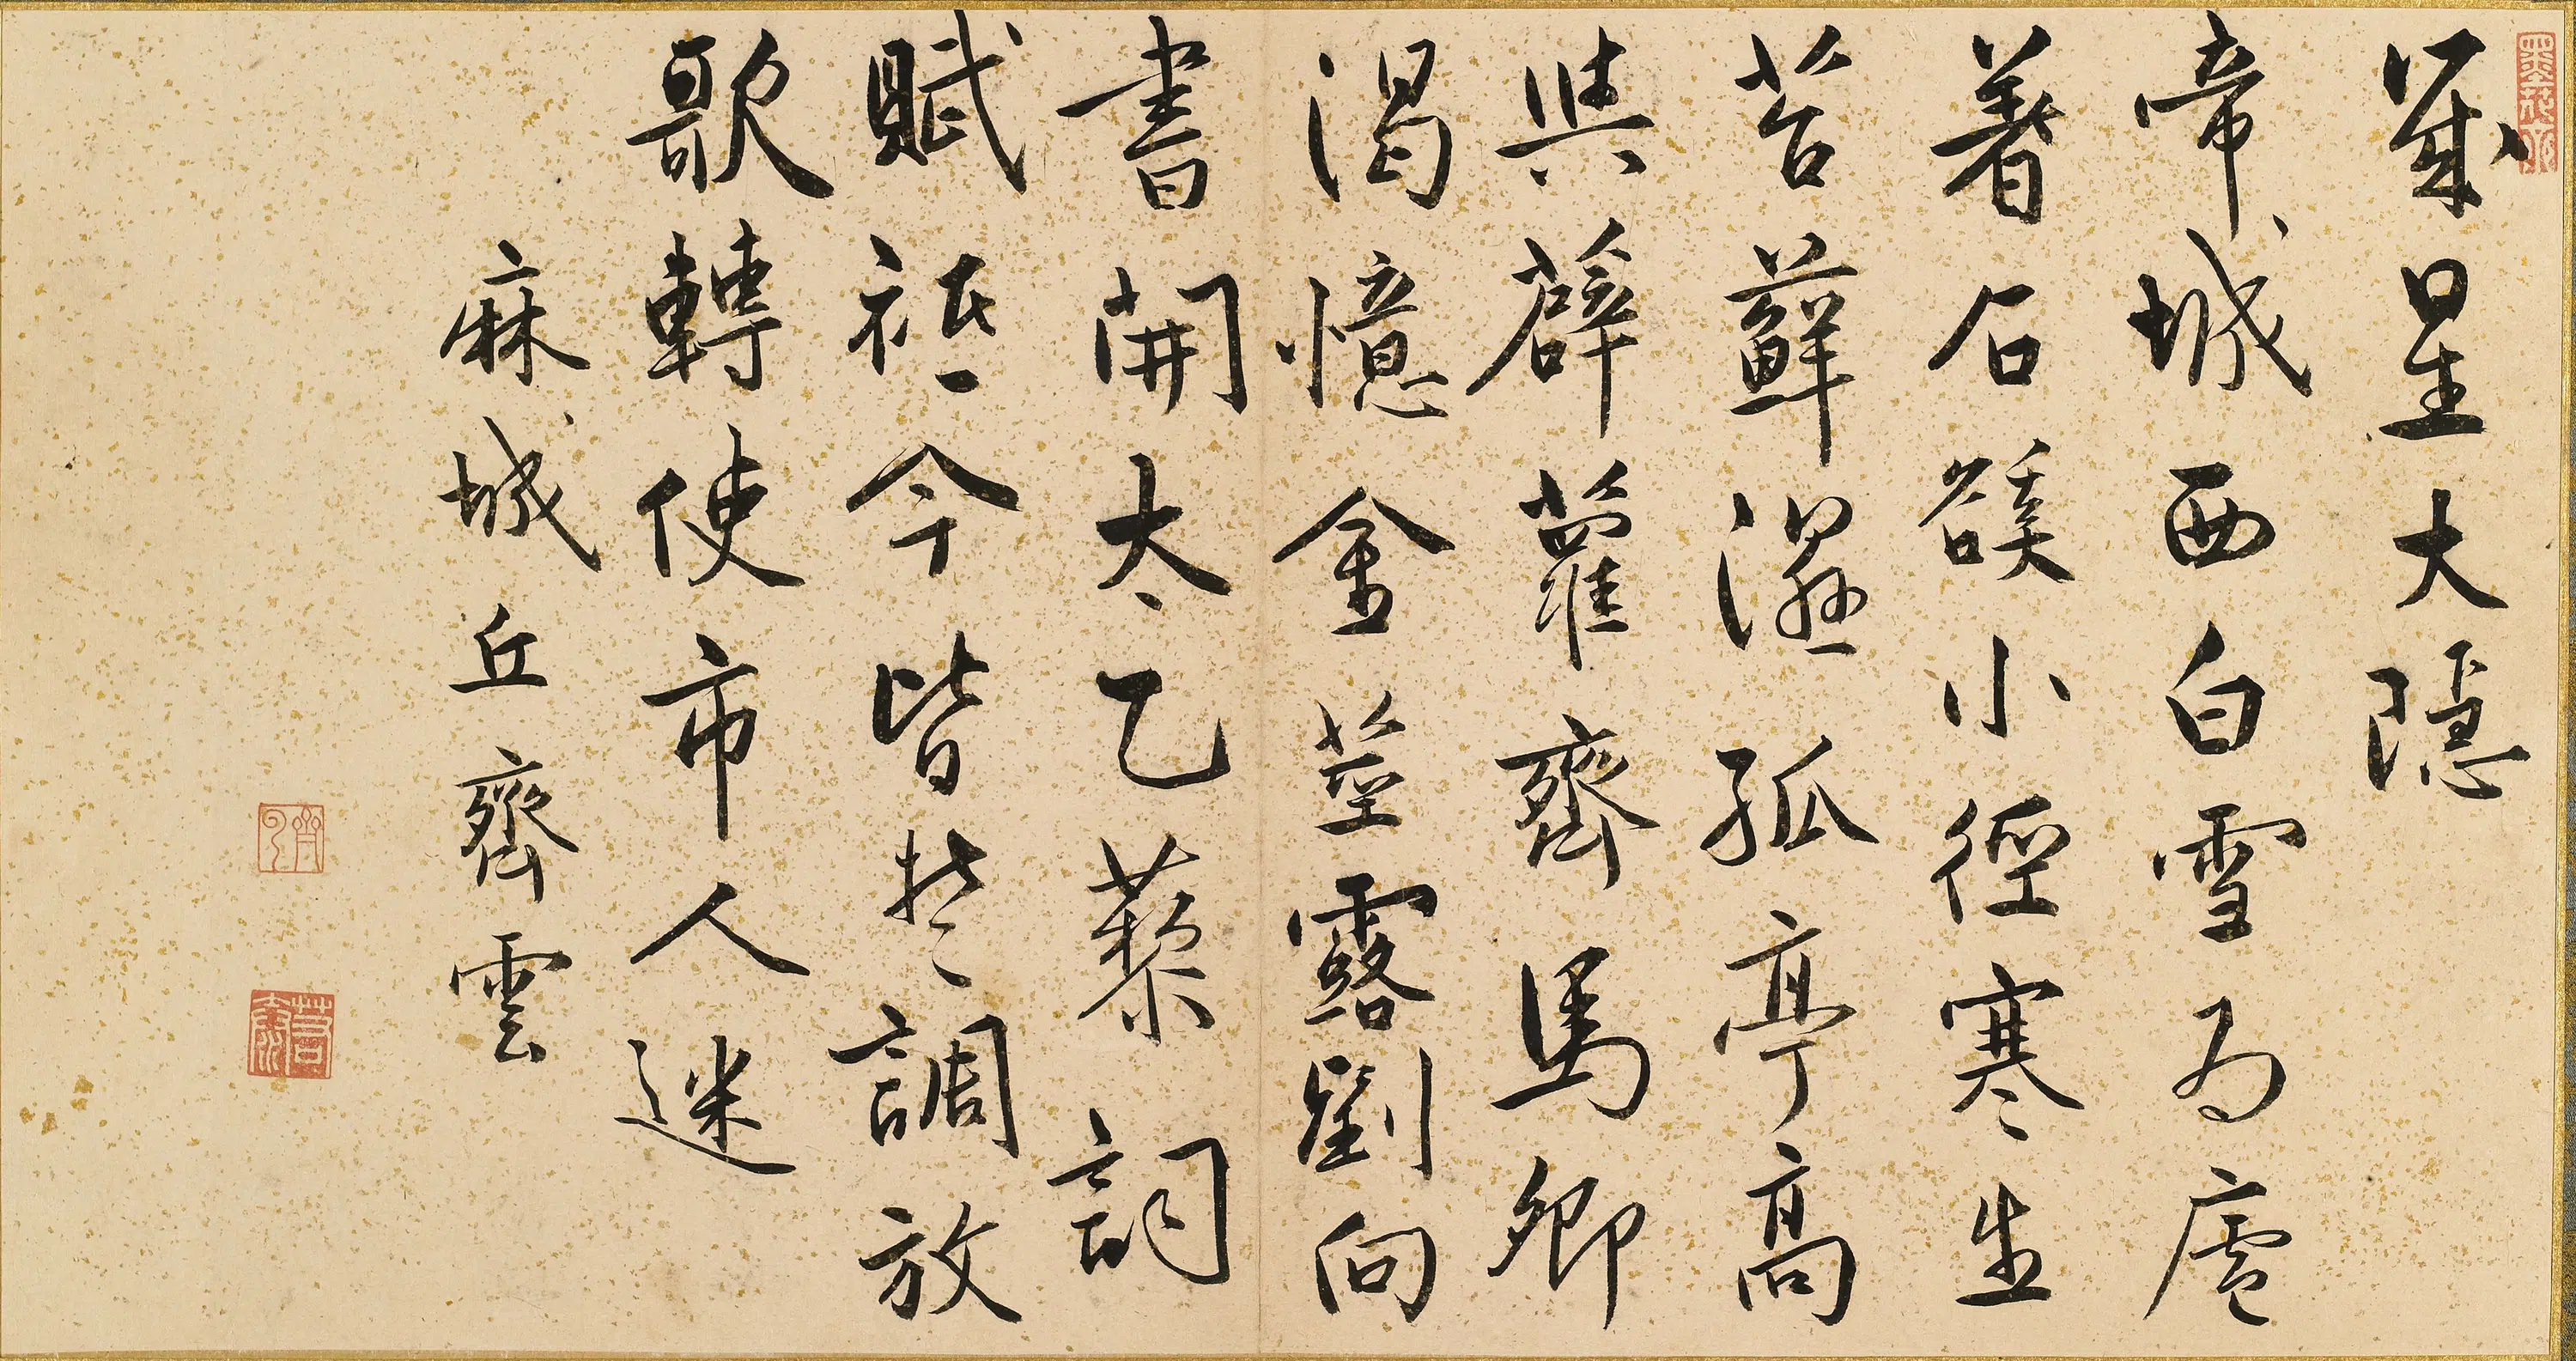 歲星大隱
帝城西白雪為廬
著石谿小徑寒生
苔蘚濕孤亭高
與薜蘿齊馬卿
渴憶金莖露劉向
書開太乙藜詞
賦祗今皆楚調放
歌轉使市人迷
麻城丘齊雲